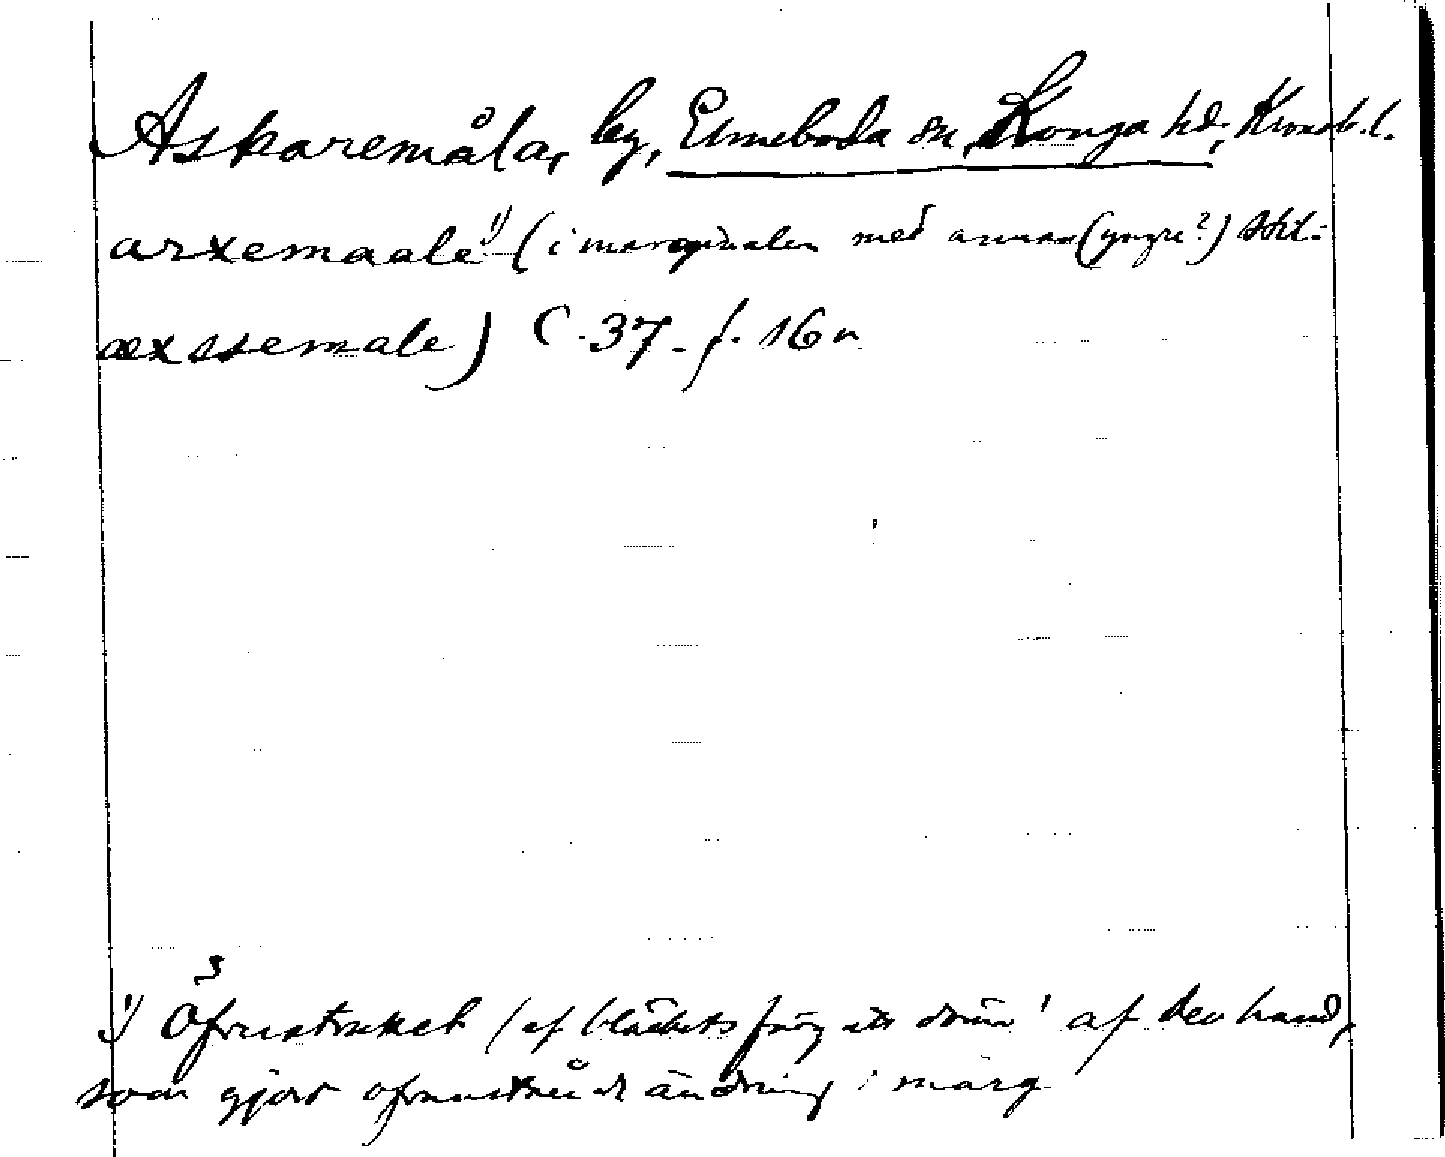 Askaremåla, by, Elmeboda sn, Konga hd, Kronob. l.
arxemaale 1) (i marginalen med annan (yngre?) stil:
æxssemale) C. 37. f. 16 r
1) Öfverstruket (af bläckets färg att döma) af den hand,
som gjort ofvanstående ändring i marg